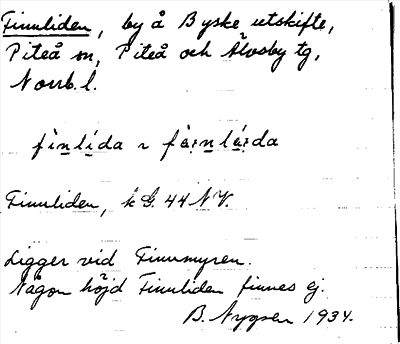 Finnliden, by å Byske utskifte,
Piteå sn, Piteå och Älvsby tg,
Norrb. l.
Finnliden, k G. 44 NV.
Ligger vid Finnmyren.
Någon höjd Finnliden finnes ej.
B. Nygren 1934.